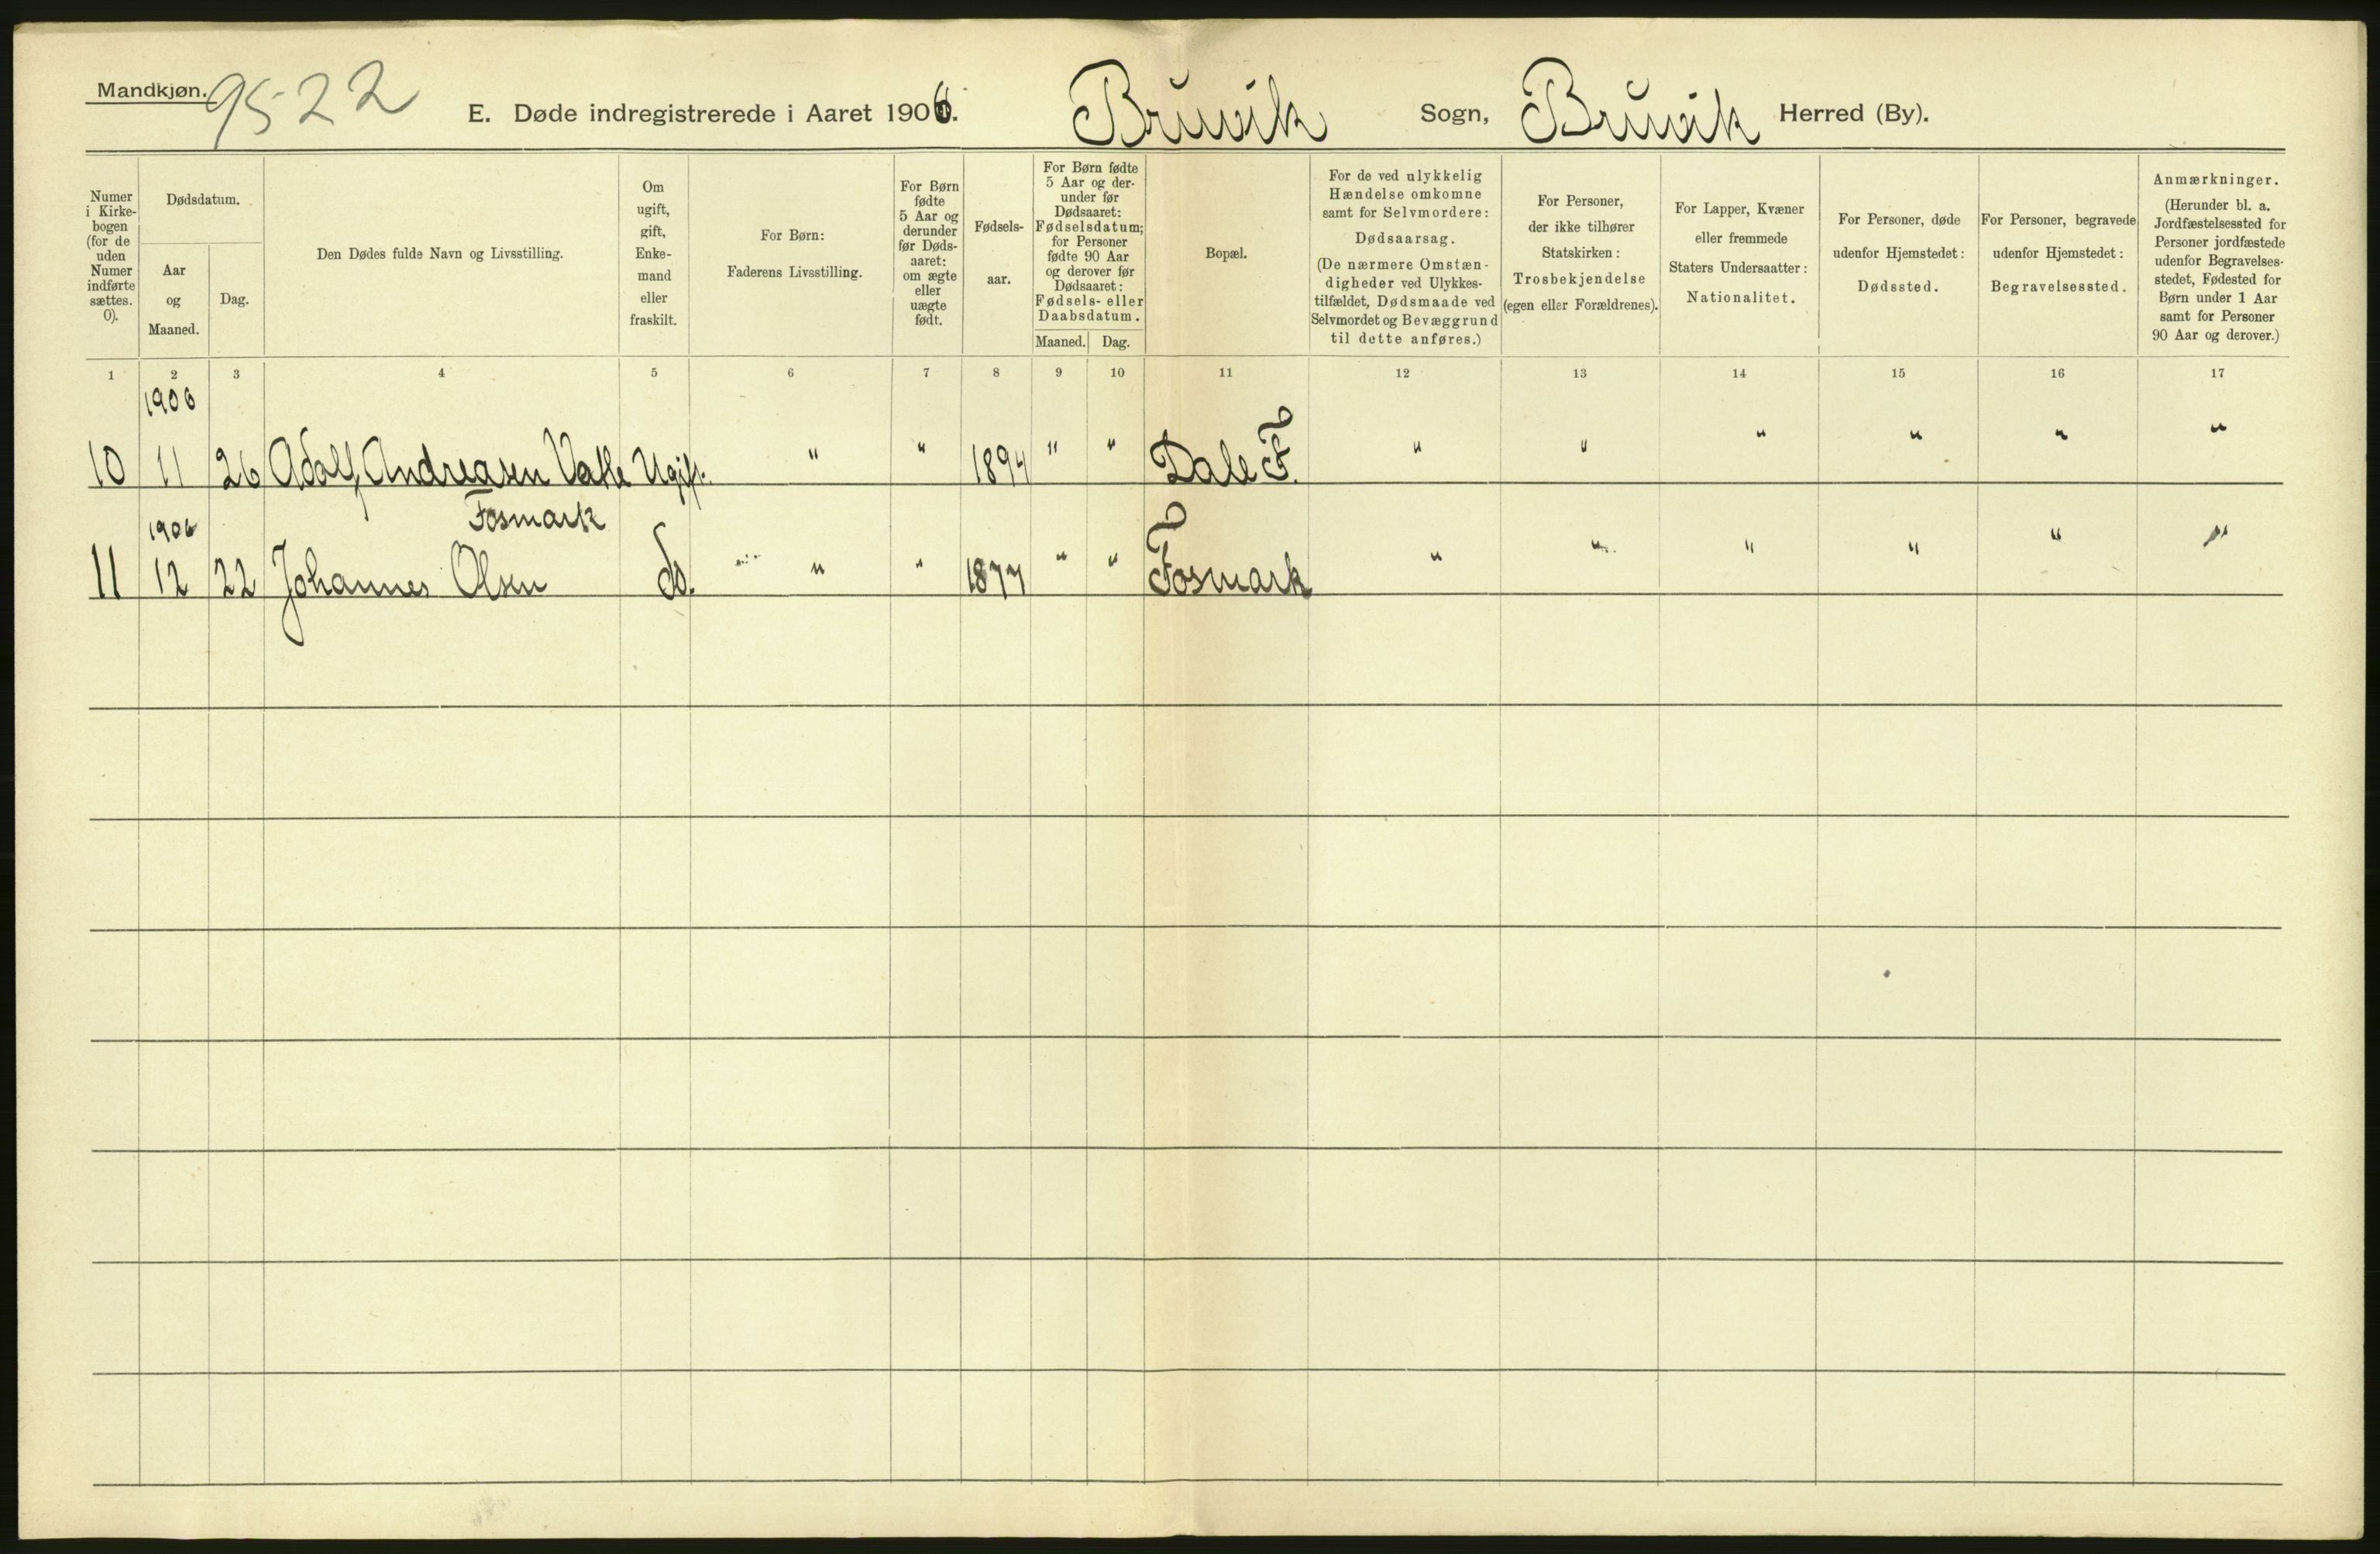 Mandkjøn. 9522
E. Døde indregistrerede i Aaret 1906. Bruvik Sogn, Bruvik Herred (By).
Numer i Kirkebogen (for de uden Numer indførte sættes. 0).
Dødsdatum.
Aar og Maaned.
Dag.
Den Dødes fulde Navn og Livsstilling.
Om ugift, gift, Enkemand eller fraskilt.
For Børn: Faderens Livsstilling.
For Børn fødte 5 Aar og derunder før Dødsaaret: om ægte eller uægte født.
Fødselsaar.
For Børn fødte 5 Aar og derunder før Dødsaaret: Fødselsdatum; for Personer fødte 90 Aar og derover før Dødsaaret: Fødsels- eller Daabsdatum.
Maaned. Dag.
Bopæl.
For de ved ulykkelig Hændelse omkomne samt for Selvmordere: Dødsaarsag. (De nærmere Omstændigheder ved Ulykkestilfældet, Dødsmaade ved Selvmordet og Bevæggrund til dette anføres.)
For Personer, der ikke tilhører Statskirken: Trosbekjendelse (egen eller Forældrenes).
For Lapper, Kvæner eller fremmede Staters Undersaatter: Nationalitet.
For Personer, døde udenfor Hjemstedet: Dødssted.
For Personer, begravede udenfor Hjemstedet: Begravelsessted.
Anmærkninger. (Herunder bl. a. Jordfæstelsessted for Personer jordfæstede udenfor Begravelsesstedet, Fødested for Børn under 1 Aar samt for Personer 90 Aar og derover.)
1 2 3 4 5 6 7 8 9 10 11 12 13 14 15 16 17
1906
10 11 26 Adolf Andreasen Ugift. " " 1894 " " Dale F. " " " " " "
1906 Fosmark
11 12 22 Johannes Olsen do. " " 1877 " " Fosmark " " " " " "